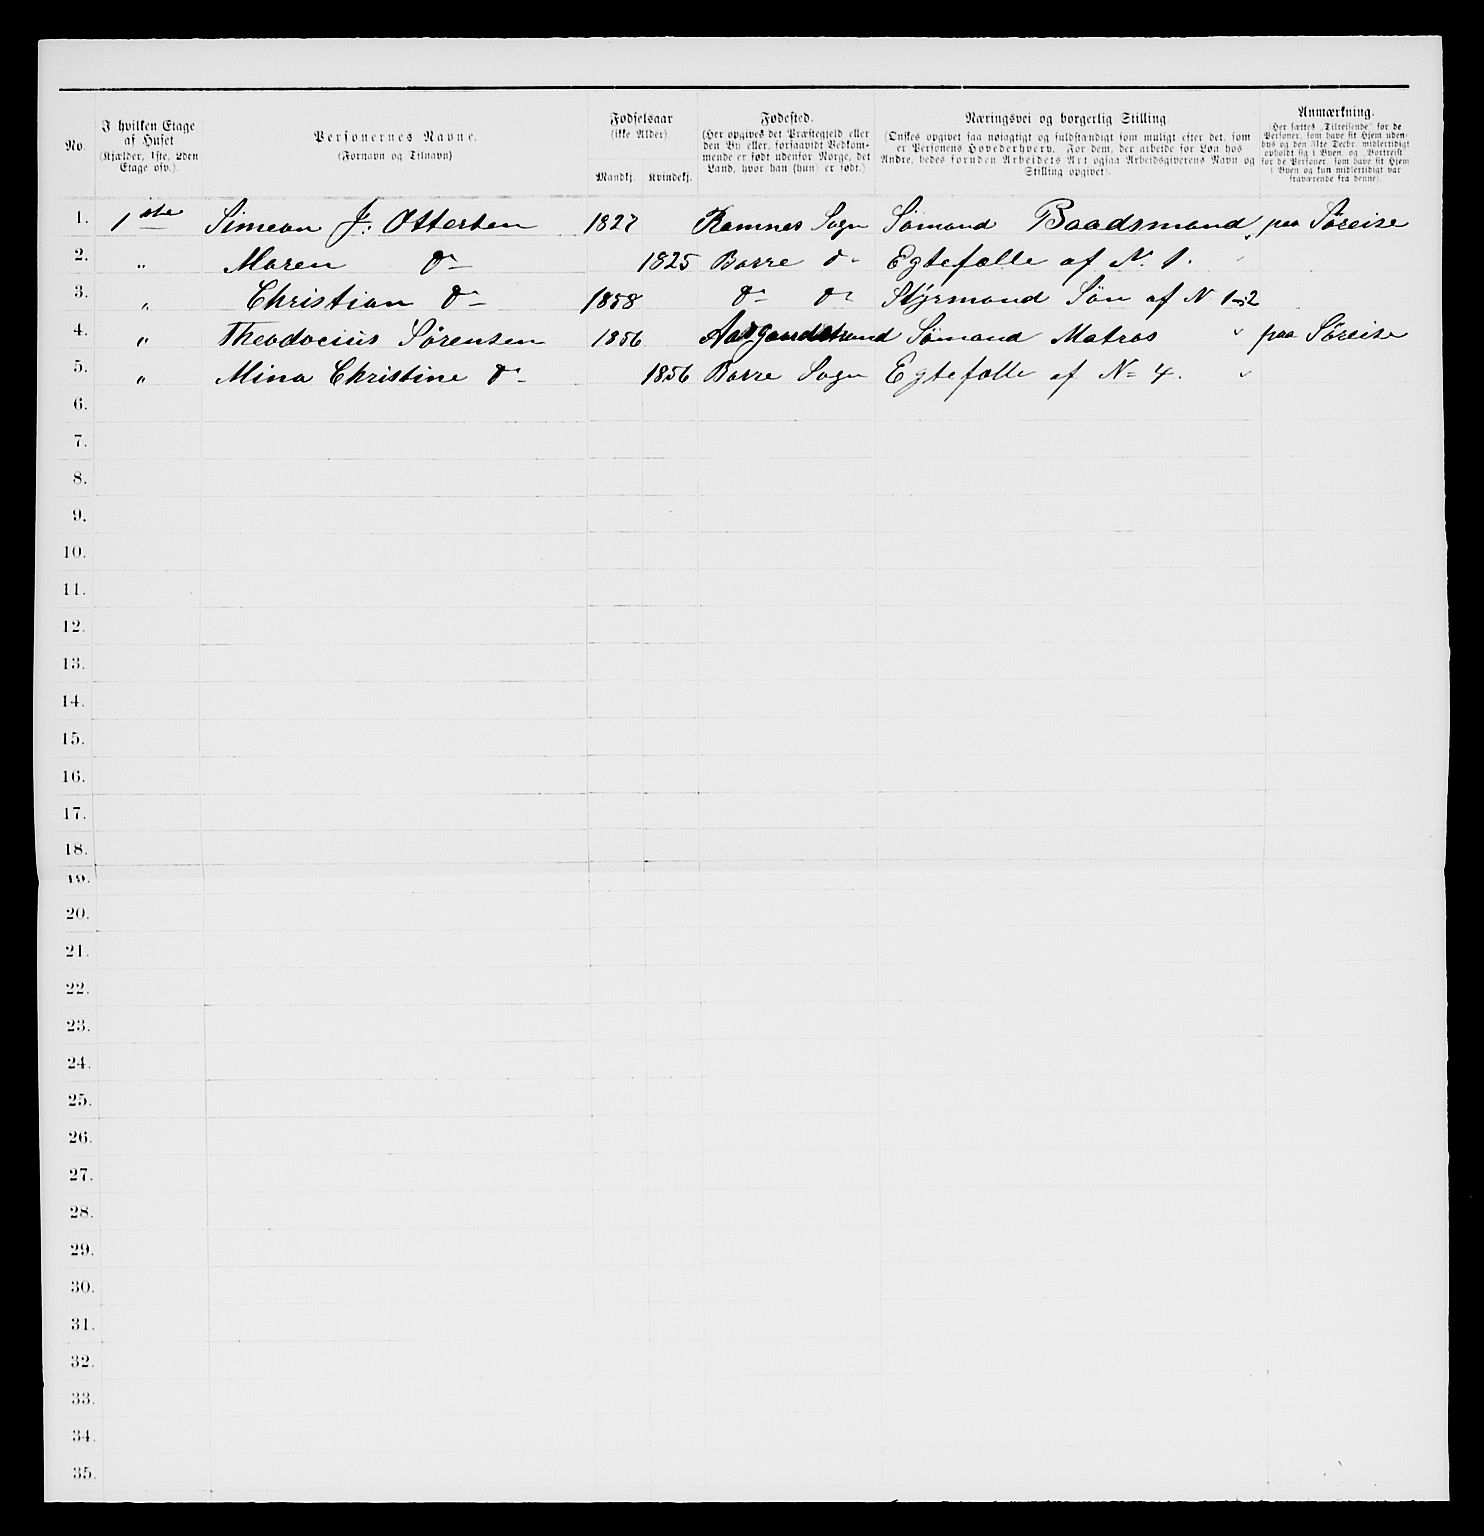 No.
I hvilken Etage
af Huset
(Kjælder, 1ste, 2den
Etage osv.).
Personernes Navne.
(Fornavn og Tilnavn)
Fødselsaar
(ikke Alder)
Mandkj. Kvindekj.
Fødested.
(Her opgives det Præstegjeld eller
den By eller, forsaavidt Vedkom-
mende er født udenfor Norge, det
Land, hvor han (hun) er født.)
Næringsvei og borgerlig Stilling.
(Ønskes opgivet saa nøiagtigt og fuldstændigt som muligt efter det, som
er Personens Hovederhverv. For dem, der arbeide for Løn hos
Andre, bedes foruden Arbeidets Art ogsaa Arbeidsgiverens Navn og
Stilling opgivet).
Anmærkning.
(Her sættes „Tilreisende" for de
Personer, som have sit Hjem uden-
bys og den 31te Decbr. midlertidigt
opholdt sig i Byen, og „Bortreist"
for de Personer, som have sit Hjem
i Byen og kun midlertidigt var
fraværende fra denne).
1. 1ste Simeon J: Ottersen 1827 Ramnes Sogn Sømand Baadsmand paa Søreise
2. " Maren do 1825 Borre do Egtefælle af No 1.
3. " Christian do 1858 do do Styrmand Søn af No 1-2
4. " Theodocius Sørensen 1856 Aasgaardstrand Sømand Matros " paa Søreise
5. " Mina Christine do 1856 Borre Sogn Egtefælle af No 4. "
6.
7.
8.
9.
10.
11.
12.
13.
14.
15.
16.
17.
18.
19.
20.
21.
22.
23.
24.
25.
26.
27.
28.
29.
30.
31.
32.
33.
34.
35.